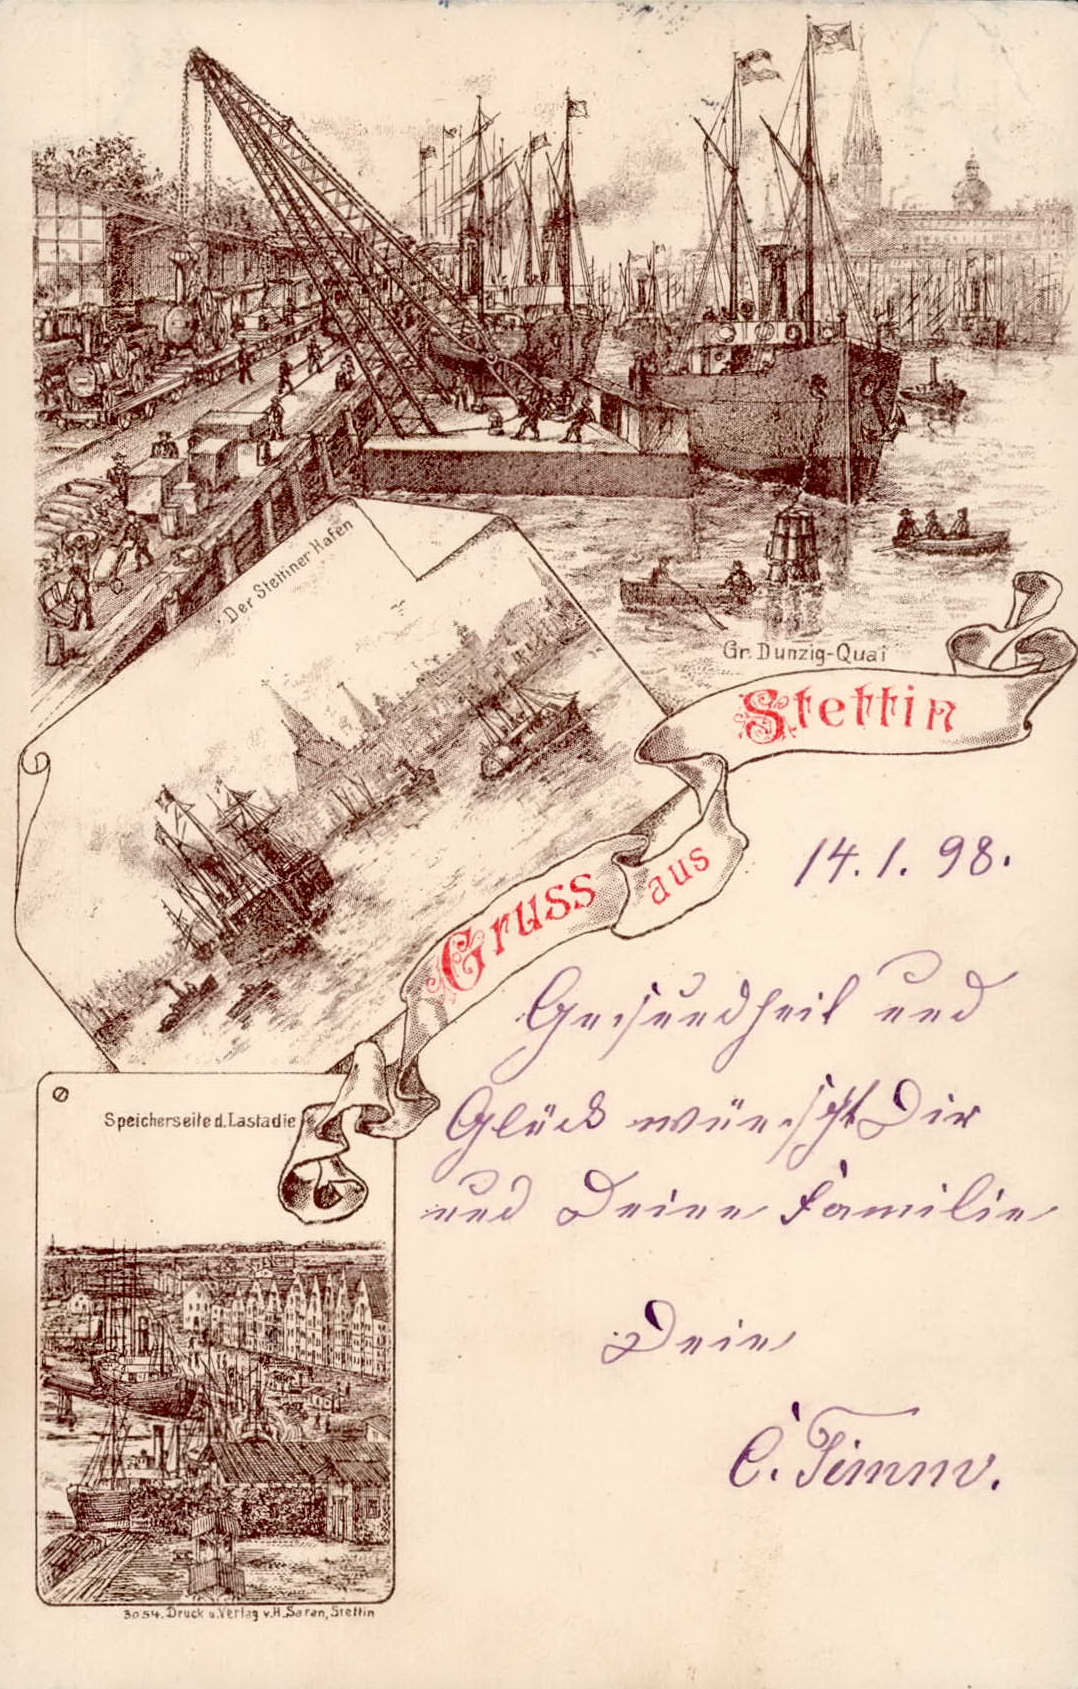 Der Stettiner Hafen
Gr. Dunzig-Quai
Gruss aus Stettin
14.1.98.
Gesundheit und
Glück wünscht Dir
und Deiner Familie
Dein
C. Timm.
Speicherseite d. Lastadie
3054. Druck u. Verlag v. H. Saran, Stettin